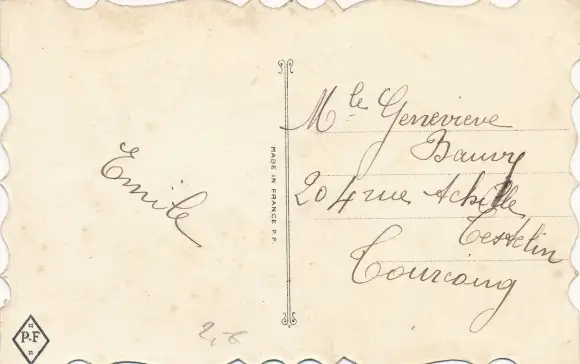 Emile
MADE IN FRANCE P.F.
Mlle Genevieve
Bauvy
204 rue Achille
Testelin
Tourcoing
P.F
2,-€